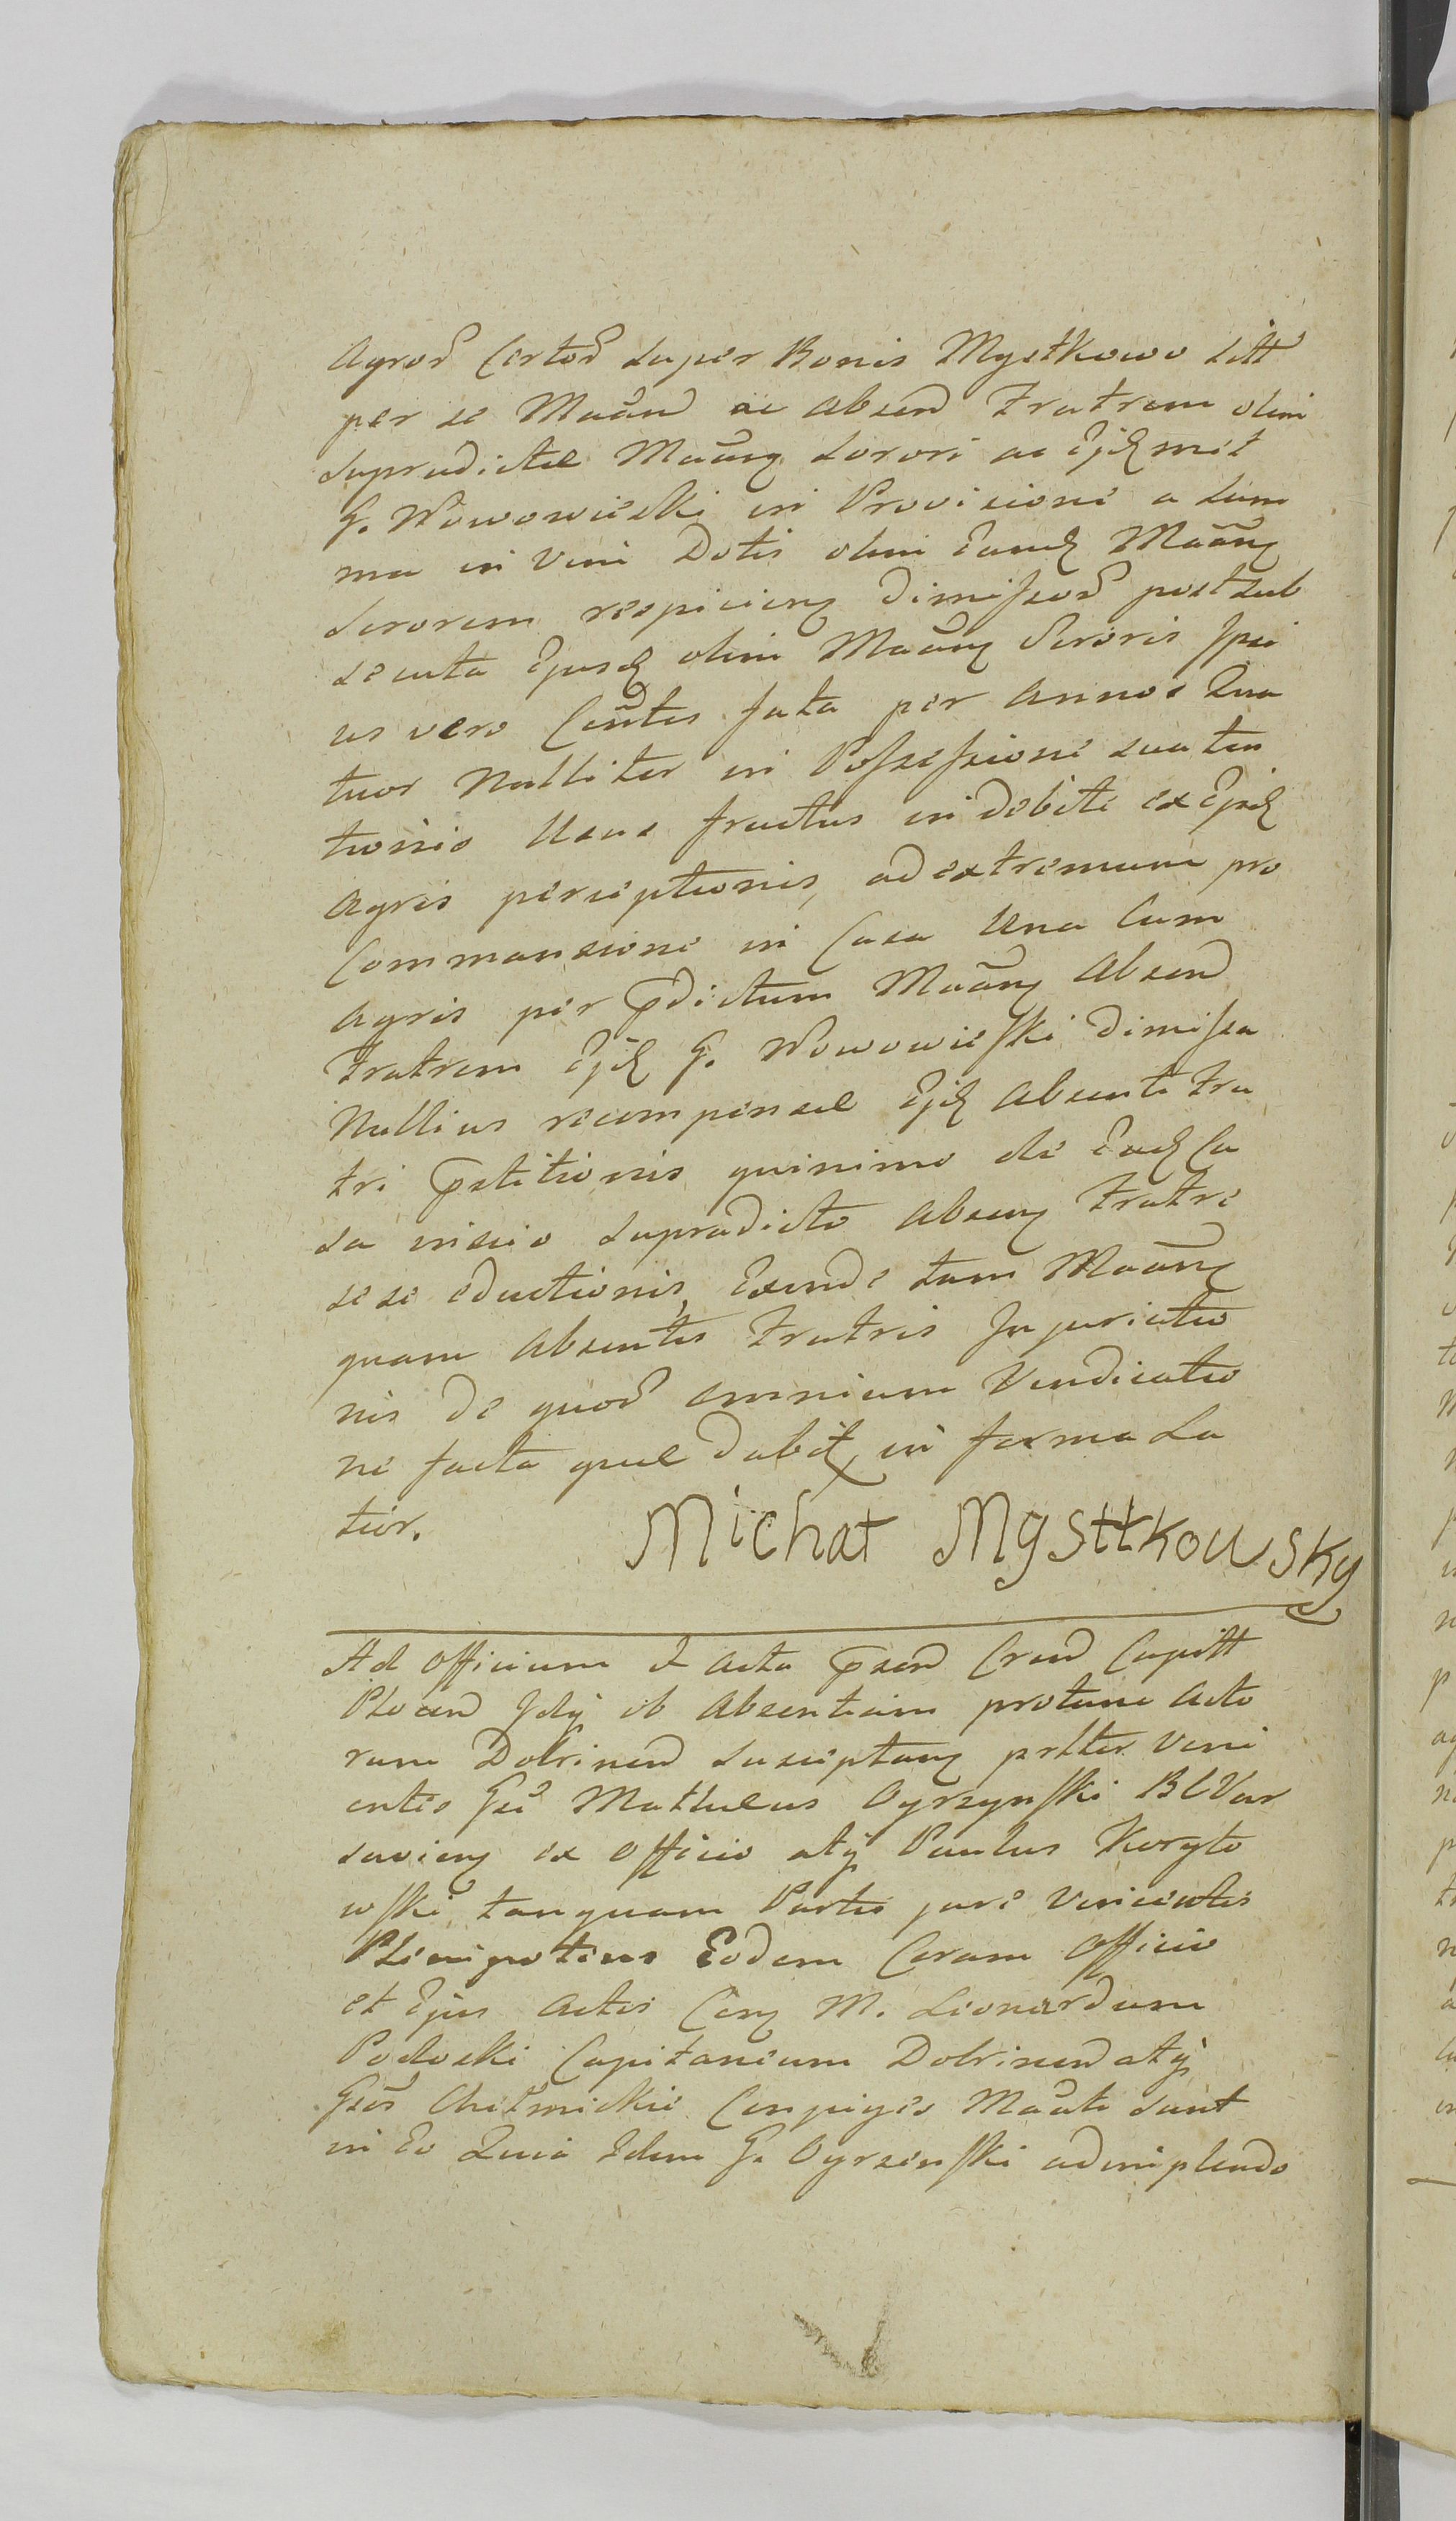 Agror Certor super Bonis Mystkowo sitt
per se Maand ac absen fratrem olim
supradictae Maang sorori ac Ejd mit
G. Nowowieski in Provisione a Sum
ma in Vim Dotis olim Eand Maang
sororem respiciens dimissor post sub
secuta Ejusd olim Maang Sororis Ipsi
us vero Contis fata per Annos Qua
tuor Nulliter in Possessione sua ten
tionis Usus fructus indebite ex Ejsd
Agris perceptionis, ad extremum pro
Commansione in Casa Una Cum
Agris per pdictum Maang Absen
fratrem Ejd G. Nowowieski dimissa
Nullius recompensae Ejd Absenti fra
tri pstitionis quinimo de Ead Ca
sa inscio supradicto Absen fratre
sese eductionis, Exinde tam Maang
quam Absentis fratris Injuriatio
nis de quor omnium Vindicatio
ne facta quae dabit in forma La
tior.
Michał Mysttkowsky
Ad Officium & Acta psen Cren Capitt
Plocen Idq ob Absentiam protunc Acto
rum Dobrinen susceptang prltter Veni
entes Gsi Mathaeus Oyrzynski BCVar
saviens ex Officio atq Paulus Koryto
wski tanquam Partis jure vincentis
Plenipotens Eodem Coram Officio
et Ejus Actis Cong M. Leonardum
Podoski Capitaneum Dobrinen atq
Gsos Chełmickie Conjuges Maanti sunt
in Eo Quia Idem G. Oyrzinski adimplendo